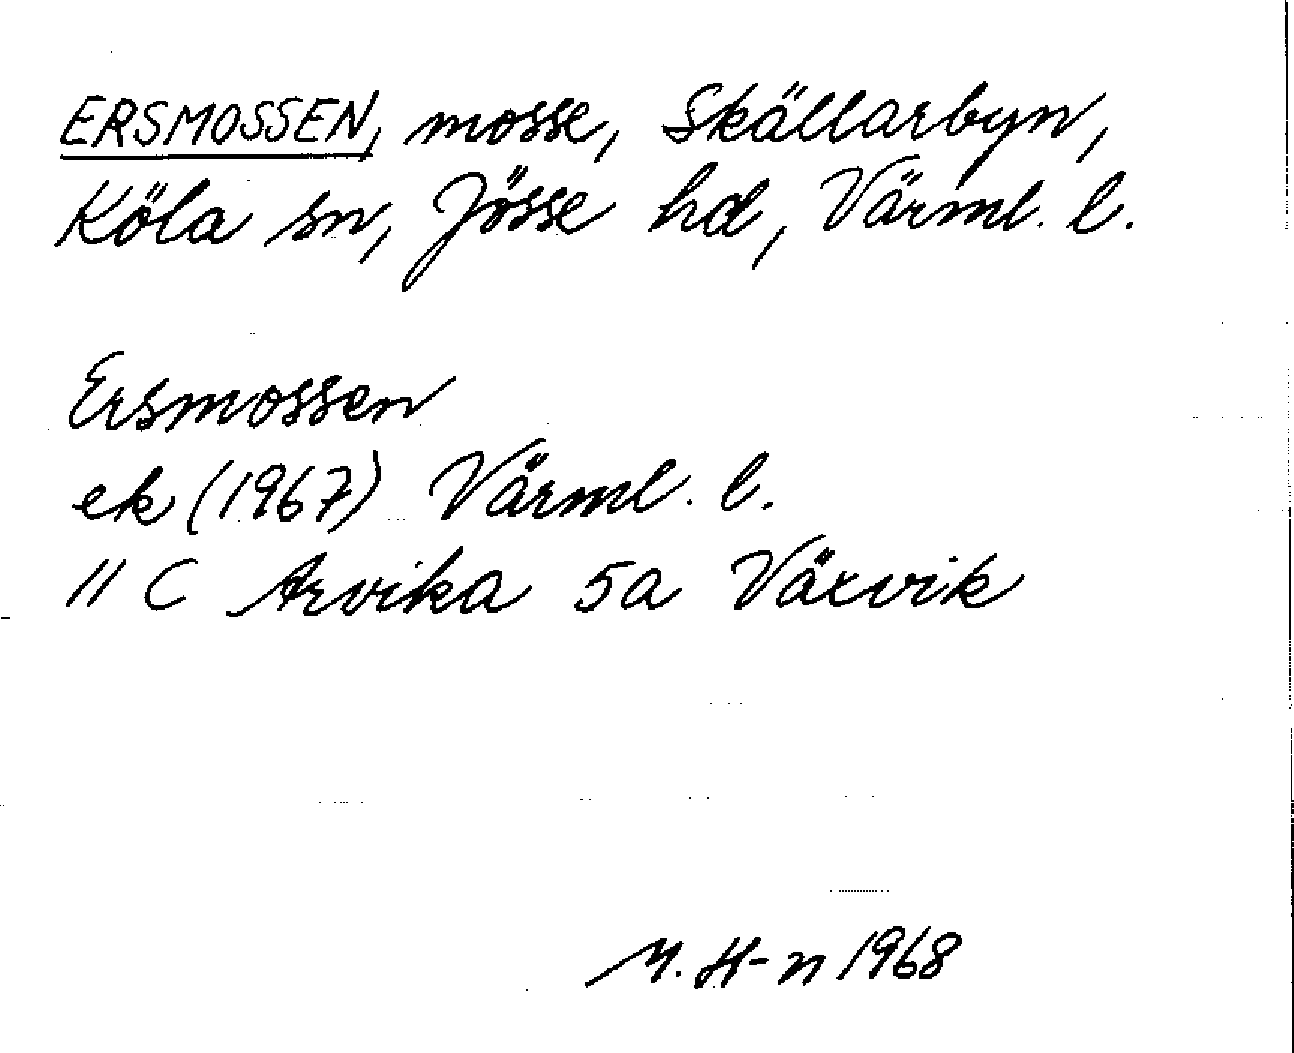 ERSMOSSEN, mosse, Skällarbyn,
Köla sn, Jösse hd, Värml. l.
Ersmossen
ek (1967) Värml. l.
11 C Arvika 5a Växvik
M. H-n 1968